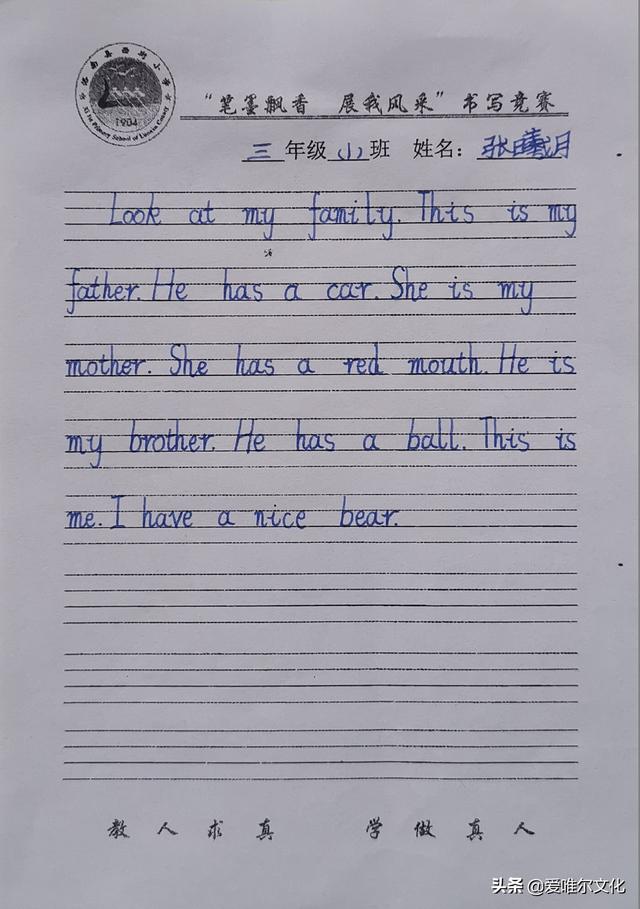 洛南县西街小学
Xi Jie Primary School of Luonan County
1904
“笔墨飘香 展我风采”书写竞赛
三 年级 (1) 班 姓名： 张曦月
Look at my family. This is my
father. He has a car. She is my
mother. She has a red mouth. He is
my brother. He has a ball. This is
me. I have a nice bear.
教人求真 学做真人
头条 @爱唯尔文化